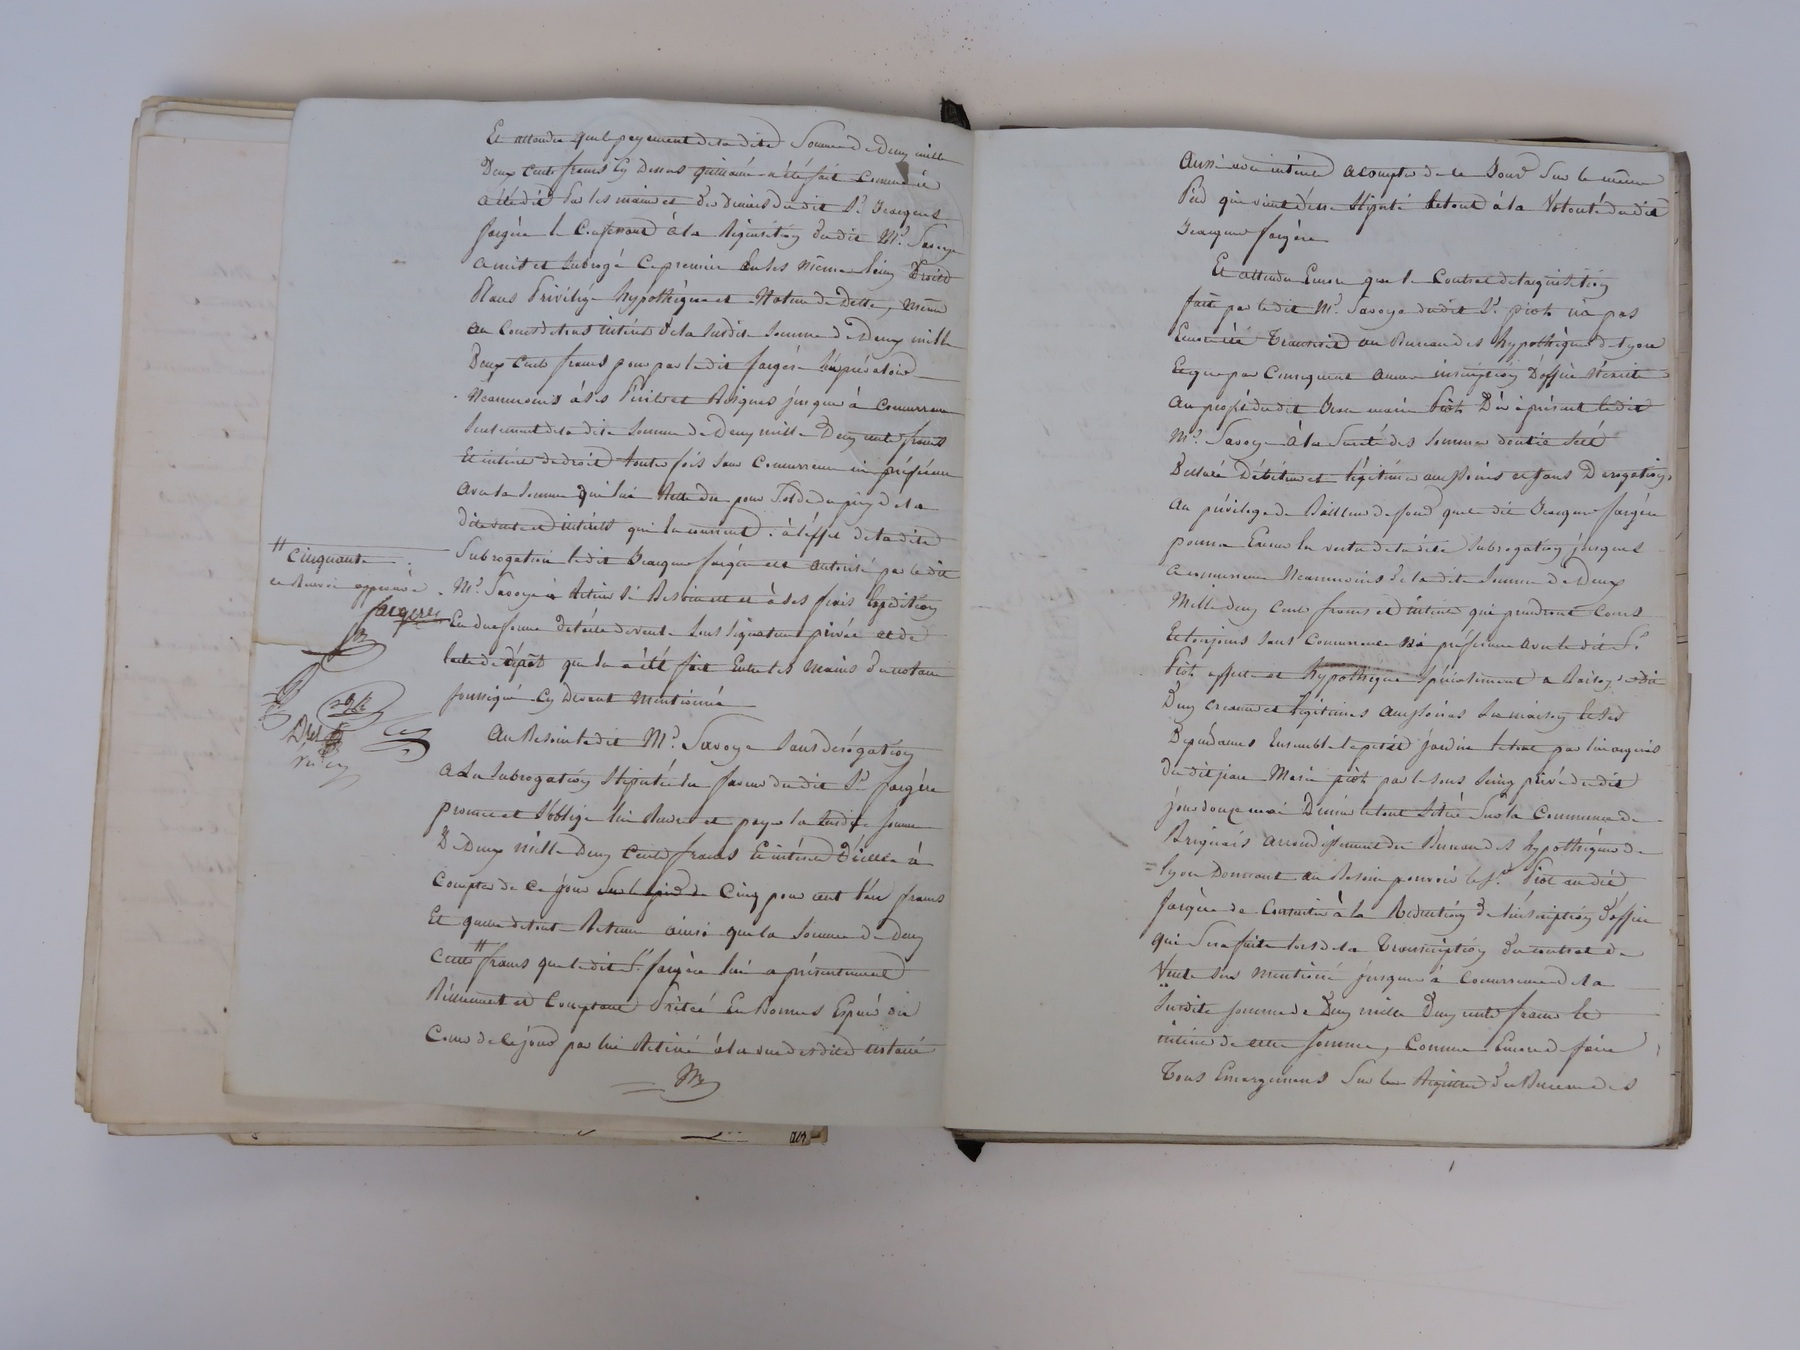 Et attendu que le payement de la dite Somme de Deux mille
Deux Cents francs Cy Dessus quittancée a été fait comme il
a été dit Par les mains et Des Deniers du dit Sr. Jacques
fargère le Confessant à la Réquisition du dit Mr. Savoye
a mis et Subrogé Ce premier En ses même lieu Droits
Place Privilège hypothèque et Nature de Dette, même
au Cours de tous intérêts de la Susdite Somme de Deux mille
Deux Cents francs pour par le dit fargère
Néanmoins à Ses Périls et Risques jusques à Concurrence
Seulement de la dite Somme de Deux mille Deux cents francs
Et intérêts de droit toute fois Sans Concurrence ni préférence
avec la Somme qui lui Reste Due pour Solde du prix de la
dite vente et intérêts qui la courrent : à l'effet de la dite
Subrogation le dit Jacques fargère est autorisé par le dit
Mr. Savoye à Retirer Si Besoin est et à Ses frais Expédition
En due forme de l'acte de vente Sous Signature privée et de
l'acte de dépôt qui en a été fait Entre les mains du notaire
soussigné Cy Devant Mentionné
Au Besoin le dit Mr. Savoye Sans dérogation
a La Subrogation Stipulée En faveur du dit Sr. fargère
promet et S'oblige lui Rendre et payer la Susdite Somme
De Deux mille Deux Cents francs Et intérêts D'icelle à
Compter de Ce jour Sur le pied de Cinq pour cent l'an francs
Et quitte de toute Retenue ainsi que la Somme de Deux
Cents # francs que le dit Sr. fargère lui a présentement
Réellement et Comptant Prêtée En Bonnes Espèces au
Cours de Ce jour par lui Retirée à la vue des dits notaire
# Cinquante
ce Renvoi approuvé
fargere
aussi avec intérêts a Compter de ce Jour Sur le même
Pied qui vient d'être Stipulé le tout à la Volonté du dit
Jacques fargère
Et attendu Encore que le Contrat de l'acquisition
faite par le dit Mr. Savoye du dit Sr. Piot n'a pas
Encore été Transcrit au Bureau des hypothèques de Lyon
Et que par Conséquent aucune inscription D'office n'existe
au profit du dit Jean marie Piot Dès à présent le dit
Mr. Savoye à la Sureté des Sommes dont il s'est
Déclaré Débiteur et légitimes accessoires et Sans Dérogation
au privilège de Bailleur de fond que le dit Jacques fargère
pourra Exercer En vertu de la dite Subrogation jusques
a concurrence Néanmoins de la dite Somme de Deux
Mille deux Cents francs et intérêts qui prendront Cours
Et toujours Sans Concurrence ni préférence avec le dit Sr.
Piot affecte et hypothèque Spécialement a Raison de
Deux créances et légitimes accessoires Sa maison et Ses
Dépendances Ensemble le petit jardin le tout par lui acquis
du dit jean Marie piot par le Sous Seing privé du dit
jour douze mai Dernier le tout Situé Sur la Commune de
Brignais arrondissement du Bureau des hypothèques de
Lyon Donnant au Besoin pouvoir le Sr. Piot au dit
fargère de Consentir à la Réduction de l'inscription D'office
qui Sera faite lors de la Transcription du contrat de
Vente Sus Mentionné jusques à Concurrence de la
Susdite Somme de Deux mille Deux cents francs Et
intérêts de cette Somme, Comme Encore de faire
Tous Emargemens Sur les Registres du Bureau des